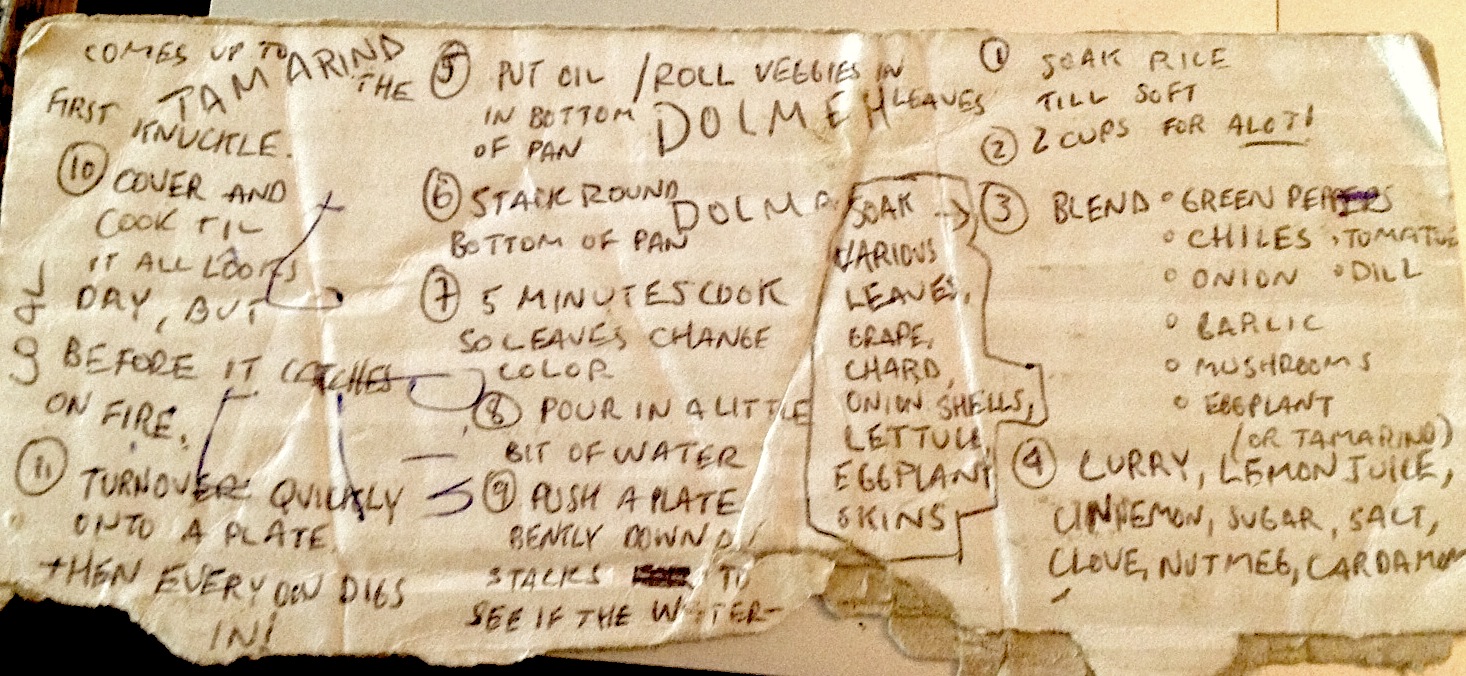 ① SOAK RICE
TILL SOFT
② 2 CUPS FOR ALOT!
③ BLEND ° GREEN PEPPERS
° CHILES ° TOMATOE
° ONION ° DILL
° GARLIC
° MUSHROOMS
° EGGPLANT
(OR TAMARIND)
④ CURRY, LEMON JUICE,
CINNEMON, SUGAR, SALT,
CLOVE, NUTMEG, CARDAMOM
SOAK →
VARIOUS
LEAVES,
GRAPE,
CHARD,
ONION SHELLS,
LETTUCE
EGGPLANT
SKINS
DOLMEH
DOLMA
⑤ PUT OIL / ROLL VEGGIES IN
IN BOTTOM LEAVES
OF PAN
⑥ STACK ROUND
BOTTOM OF PAN
⑦ 5 MINUTES COOK
SO LEAVES CHANGE
COLOR
⑧ POUR IN A LITTLE
BIT OF WATER
⑨ PUSH A PLATE
GENTLY DOWN ON
STACKS TO
SEE IF THE WATER-
COMES UP TO
THE
FIRST
KNUCKLE.
TAMARIND
⑩ COVER AND
COOK TIL
IT ALL LOOKS
DRY, BUT
BEFORE IT CATCHES
ON FIRE.
⑪ TURNOVER QUICKLY
ONTO A PLATE.
THEN EVERYON DIGS
IN!